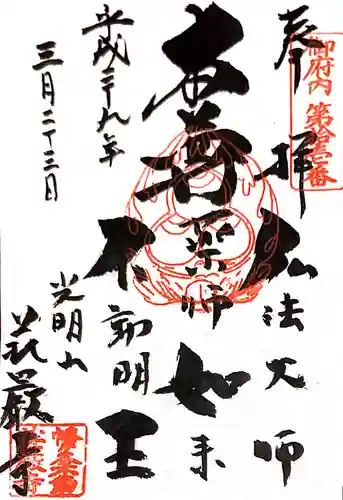 奉拝
御府内 第拾壱番
弘法大師
本尊薬師如来
不動明王
平成二十九年
三月二十三日
光明山
荘厳寺